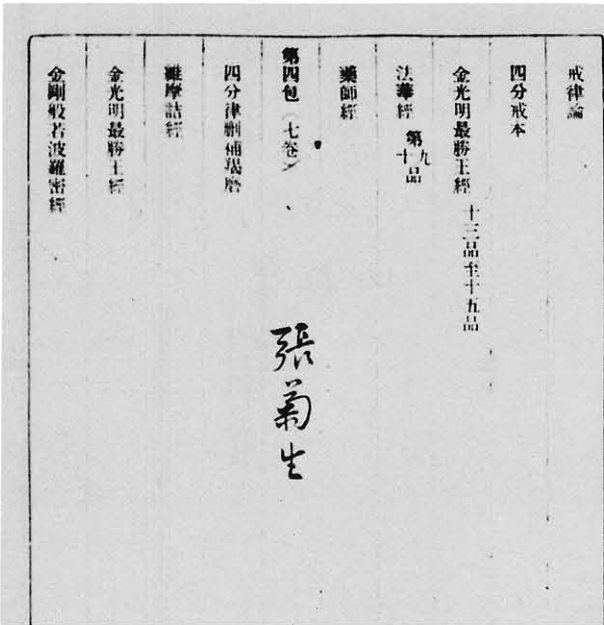 戒律論
四分戒本
金光明最勝王經 十三品至十五品
法華經 第九十品
藥師經
第四包（七卷） 張菊生
四分律刪補羯磨
維摩詰經
金光明最勝王經
金剛般若波羅密經